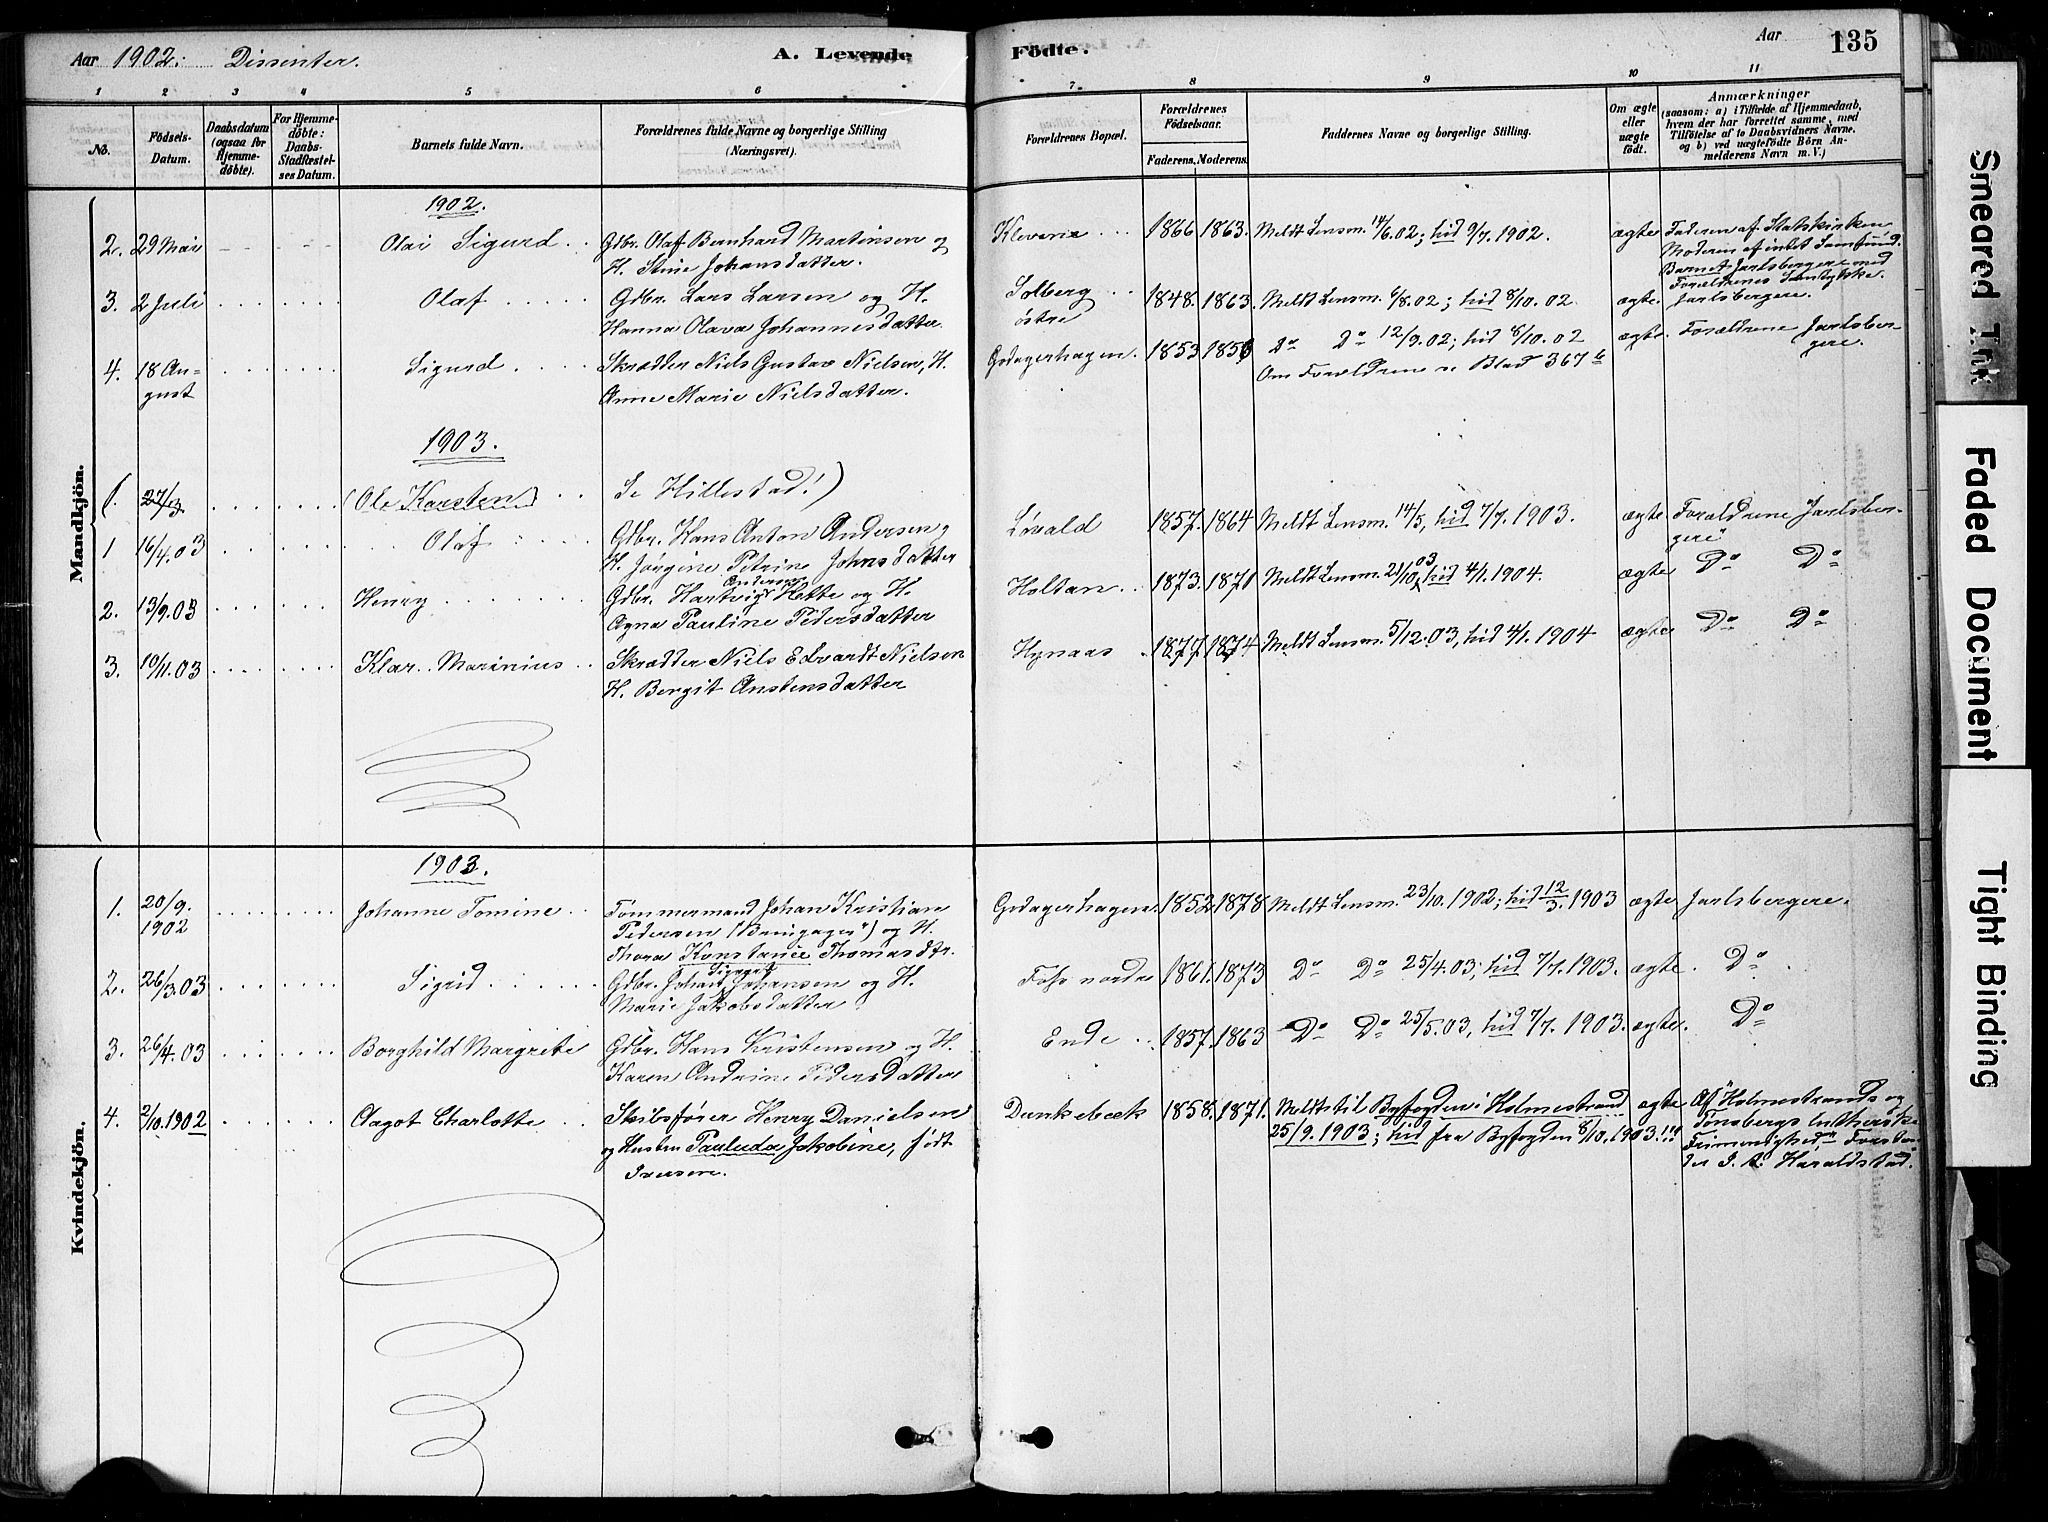 Aar 1902. Dissenter. A. Levende Födte. Aar 135
1 2 3 4 5 6 7 8 9 10 11
No. Födsels-Datum. Daabsdatum (ogsaa for Hjemmedöbte). For Hjemmedöbte: Daabs-Stadfæstelses Datum. Barnets fulde Navn. Forældrenes fulde Navne og borgerlige Stilling (Næringsvei). Forældrenes Bopæl. Forældrenes Födselsaar. Faderens. Moderens. Faddernes Navne og borgerlige Stilling. Om ægte eller uægte födt. Anmærkninger (saasom: a) i Tilfælde af Hjemmedaab, hvem der har forrettet samme, med Tilföielse af to Daabsvidners Navne, og b) ved uægtefödte Börn Anmelderens Navn m. V.)
Mandkjön.
1902.
2. 29 Mai Olai Sigurd Gdbr. Olaf Bernhard Martinsen og Klevene 1866 1863. Meldt Lensm. 14/6.02; hid 9/7.1902. ægte Faderen af Statskirken
H. Stine Johansdatter. Moderen af intet Samfund.
Barnet Jarlsbergere med
Forældrenes Samtykke.
3. 2 Juli Olaf Gdbr. Lars Larsen og H. Solberg 1848. 1863. Meldt Lensm. 6/8.02; hid 8/10.02. ægte. Jarlsbergere.
Hanna Olava Johannesdatter. østre
4. 18 Au- Sigurd Skrædder Niels Gustav Nielsen, H. Gretagerhagen. 1853 1856 Do Do 12/9.02; hid 8/10.02 ægte. Forældrene Jarlsber-
gust Anne Marie Nielsdatter. Om Forældrene se Blad 367 b gere.
1903.
(1. 27/3 (Ole Karsten) Se Hillestad!)
1 16/4.03 Olaf Gdbr. Hans Anton Andersen og Løvald 1857. 1864 Meldt Lensm. 14/5, hid 7/7.1903. ægte Forældrene Jarlsber-
H. Jørgine Petrine Johnsdatter gere
2. 13/9.03 Henry Gdbr. Hartvig Andersen Hette og H. Holtan 1873. 1871 Meldt Lensm. 21/10.03, hid 4/1.1904. ægte Do Do
Agna Pauline Pedersdatter
3. 10/11.03 Klar Marinius Skrædder Niels Edvardt Nielsen Hynaas 1877. 1874 Meldt Lensm. 5/12.03, hid 4/1.1904 ægte Do Do
H. Bergit Anstensdatter
Kvindekjön.
1903.
1. 20/9. Johanne Tomine Tømmermand Johan Kristian Gretagerhagen. 1852. 1878. Meldt Lensm. 23/10.1902; hid 12/3.1903 ægte Jarlsbergere.
1902 Pedersen og H.
Thora Konstance Thomasdtr.
2. 26/3.03 Sigrid Gdbr. Johan Johansen og H. Fohs nordre 1861. 1873 Do Do 25/4.03; hid 7/7.1903. ægte. Do
Marie Jakobsdatter
3. 26/4.03 Borghild Margrete Gdbr. Hans Kristensen og H. Ende 1857. 1863 Do Do 25/5.03, hid 7/7.1903. ægte. Do
Karen Andrine Pedersdatter
4. 2/10.1902 Aagot Charlotte Skibsfører Henry Danielsen Dunkebæk 1858. 1871. Meldt til Byfogden i Holmestrand ægte Af "Holmestrands og
og Hustru Pauluda Jakobine, født 25/9.1903; hid fra Byfogden 8/10.1903.!! Tønsbergs lutherske
Iversen. Frimenighed", Forstan-
der I. A. Haraldstad.
Smeared Ink
Faded Document
Tight Binding